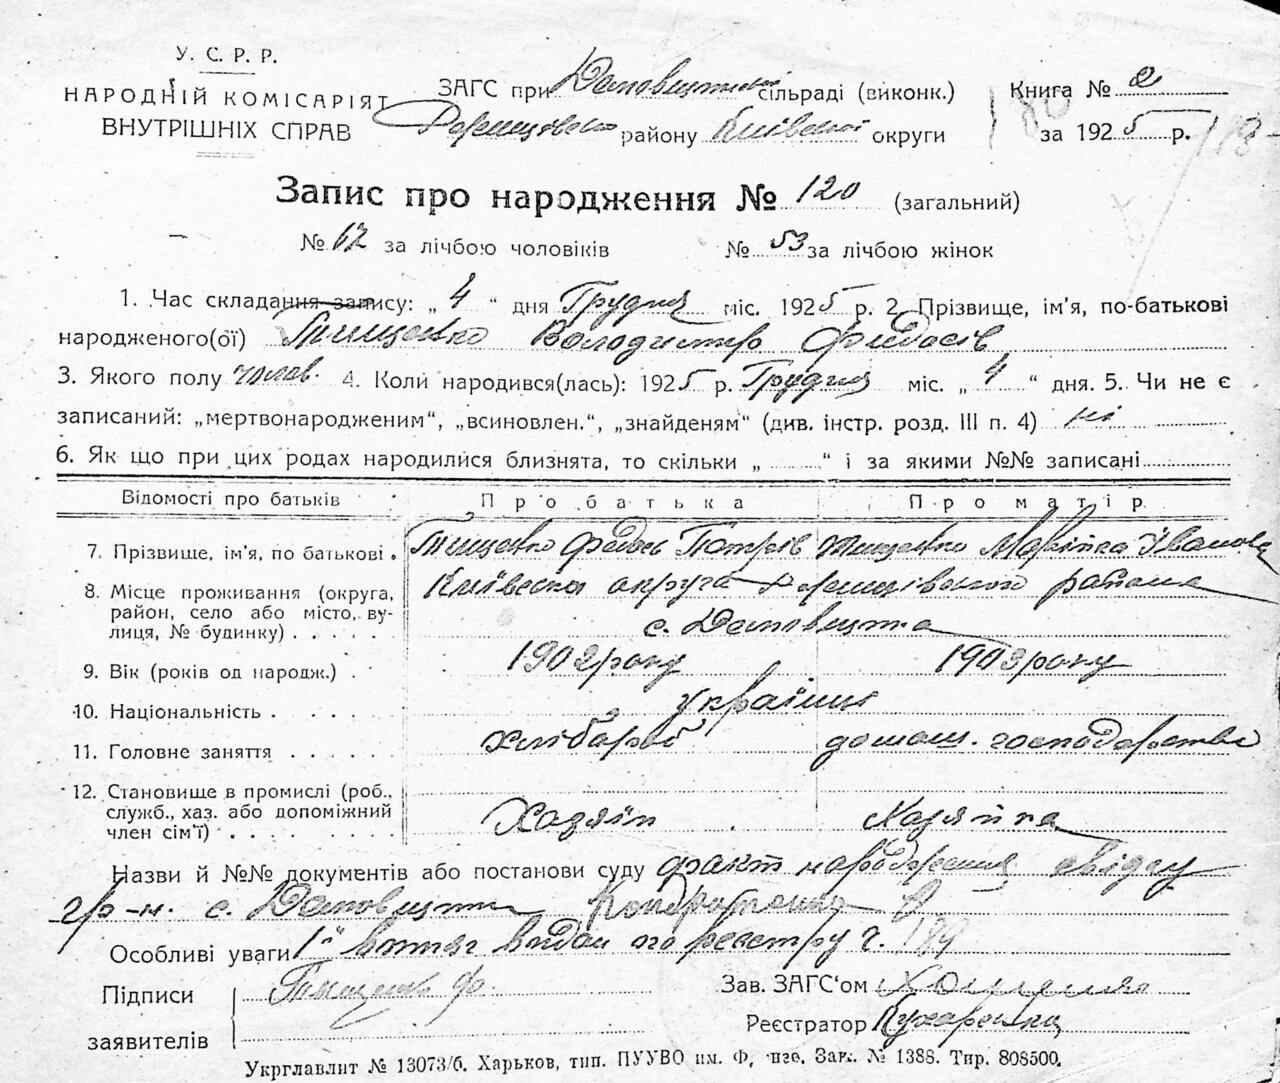 У. С. Р. Р.
НАРОДНІЙ КОМІСАРІЯТ
ВНУТРІШНІХ СПРАВ
ЗАГС при сільраді (виконк.)
району Київської округи
Книга № 2
за 1925 р.
Запис про народження № 120 (загальний)
№ 67 за лічбою чоловіків № 53 за лічбою жінок
1. Час складання запису: „ 4 “ дня Грудня міс. 1925 р. 2. Прізвище, ім'я, по-батькові
народженого(ої) Тищенко Володимир Федосів
3. Якого полу чолов. 4. Коли народився(лась): 1925 р. Грудня міс. „ 4 “ дня. 5. Чи не є
записаний: „мертвонародженим“, „всиновлен.“, „знайденям“ (див. інстр. розд. III п. 4) ні
6. Як що при цих родах народилися близнята, то скільки „ “ і за якими №№ записані
Відомості про батьків Про батька Про матір
7. Прізвище, ім'я, по батькові . Тищенко Федось Петрів Тищенко Марійка Іванова
8. Місце проживання (округа,
район, село або місто, ву-
лиця, № будинку) . . . . .
Київська округа району
с.
9. Вік (років од народж.) . 1902 року 1903 року
10. Національність . . . . . . українці
11. Головне заняття . . . . . хлібороб домаш. господарство
12. Становище в промислі (роб.,
служб., хаз. або допоміжний
член сім'ї) . . . . . . . Хазяїн Хазяйка
Назви й №№ документів або постанови суду факт народження свідчу
гр-н. с.
Особливі уваги 1й витяг видан по реєстру ч. 189
Підписи
заявителів
Зав. ЗАГС'ом
Реєстратор
Укрглавлит № 13073/б. Харьков, тип. ПУУВО им. Зак. № 1388. Тир. 808500.